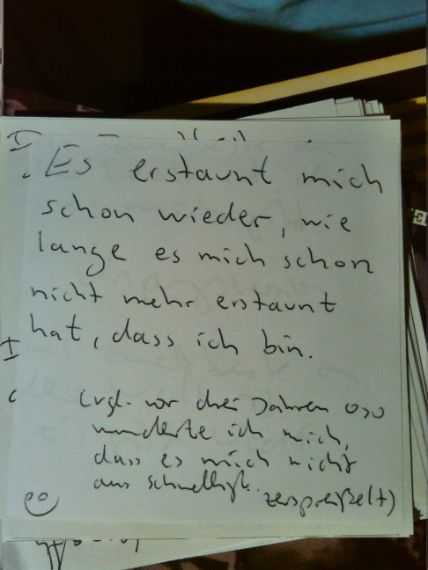 Es erstaunt mich
schon wieder, wie
lange es mich schon
nicht mehr erstaunt
hat, dass ich bin.
(vgl. vor drei Jahren oso
wunderte ich mich,
dass es mich nicht
aus
zerspreißelt)